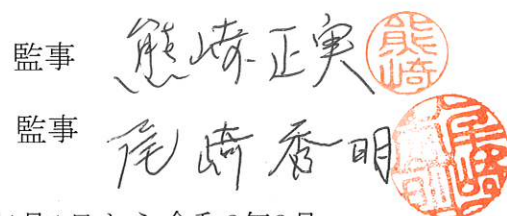 監事 熊崎正実 熊崎
監事 尾崎秀明 尾崎